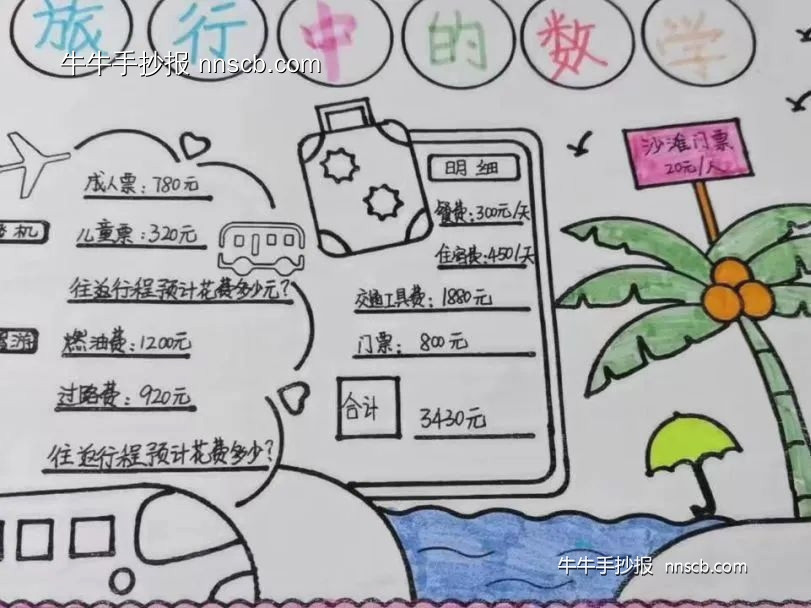 旅行中的数学
牛牛手抄报 nnscb.com
成人票：780元
机
儿童票：320元
往返行程预计花费多少元？
游
燃油费：1200元
过路费：920元
往返行程预计花费多少？
明细
餐费：300元/天
住宿费：450/天
交通工具费：1880元
门票： 800元
合计
3430元
沙滩门票
20元/人
牛牛手抄报 nnscb.com